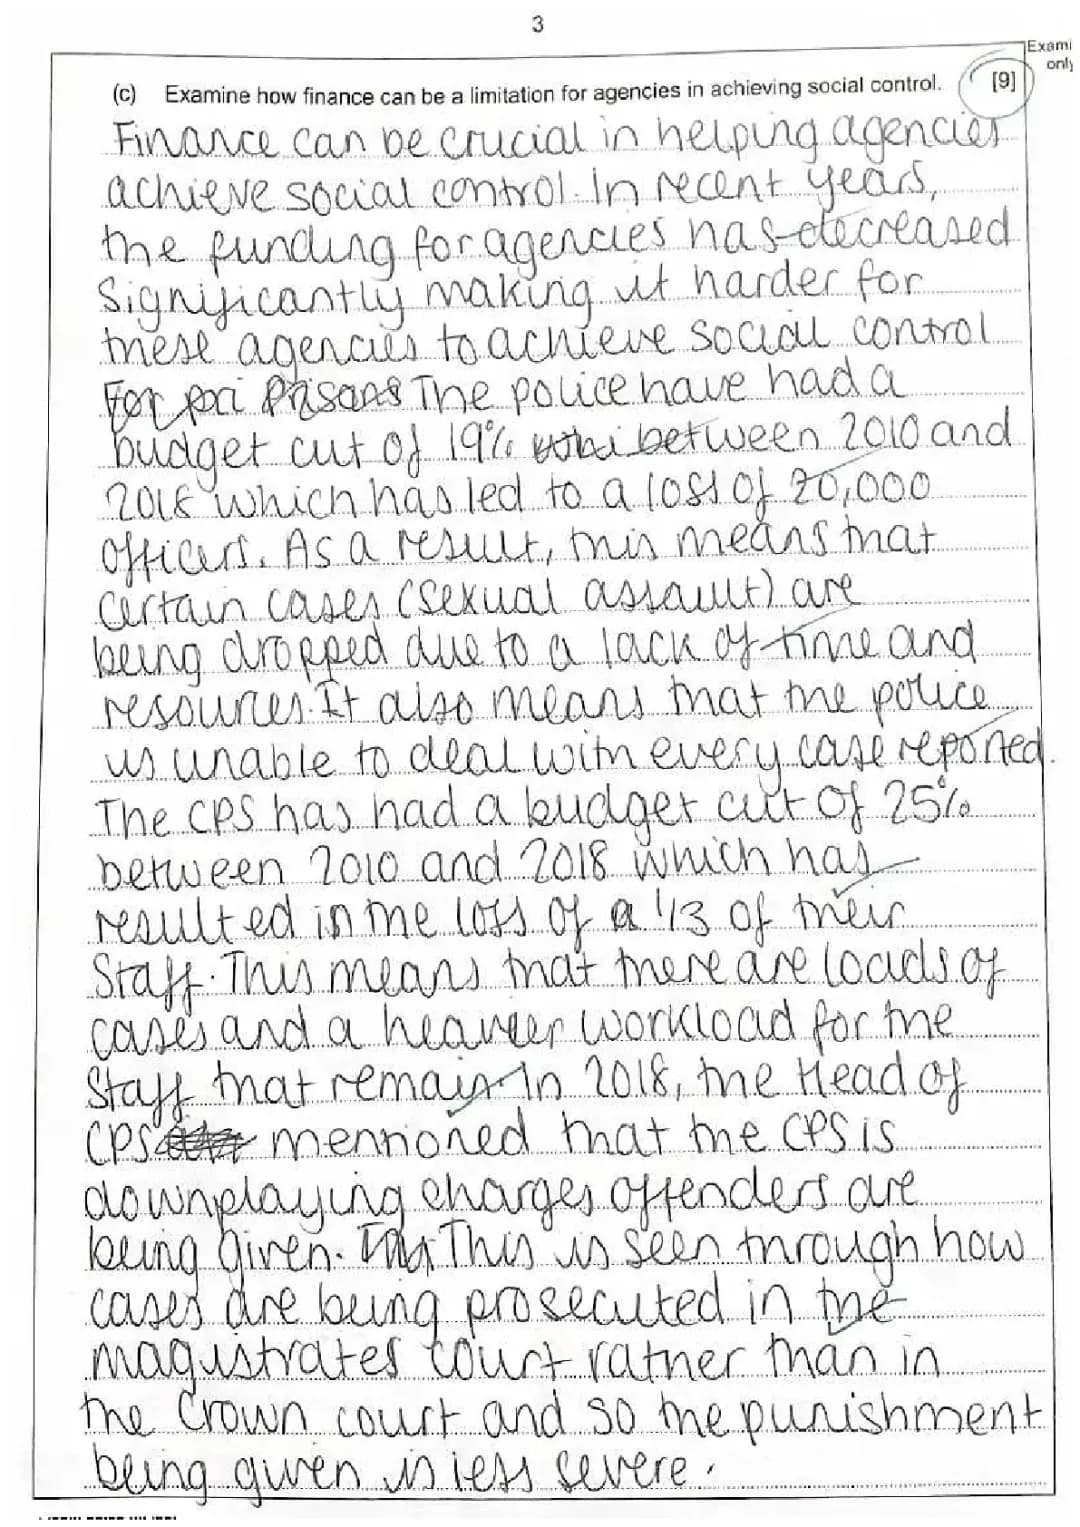 3
Exami
only
(c) Examine how finance can be a limitation for agencies in achieving social control. [9]
Finance can be crucial in helping agencies
achieve social control. In recent years,
the funding for agencies has decreased
significantly making it harder for
these agencies to achieve social control
For pri Prisons The police have had a
budget cut of 19% between 2010 and
2018 which has led to a loss of 20,000
officers. As a result, this means that
certain cases (sexual assault) are
being dropped due to a lack of time and
resources. It also means that the police
is unable to deal with every case reported.
The CPS has had a budget cut of 25%
between 2010 and 2018 which has
resulted in the loss of a 1/3 of their
staff. This means that there are loads of
cases and a heavier workload for the
staff that remain. In 2018, the Head of
CPS mentioned that the CPS is
downplaying charges offenders are
being given. This is seen through how
cases are being prosecuted in the
magistrates court rather than in
the Crown court and so the punishment
being given is less severe.